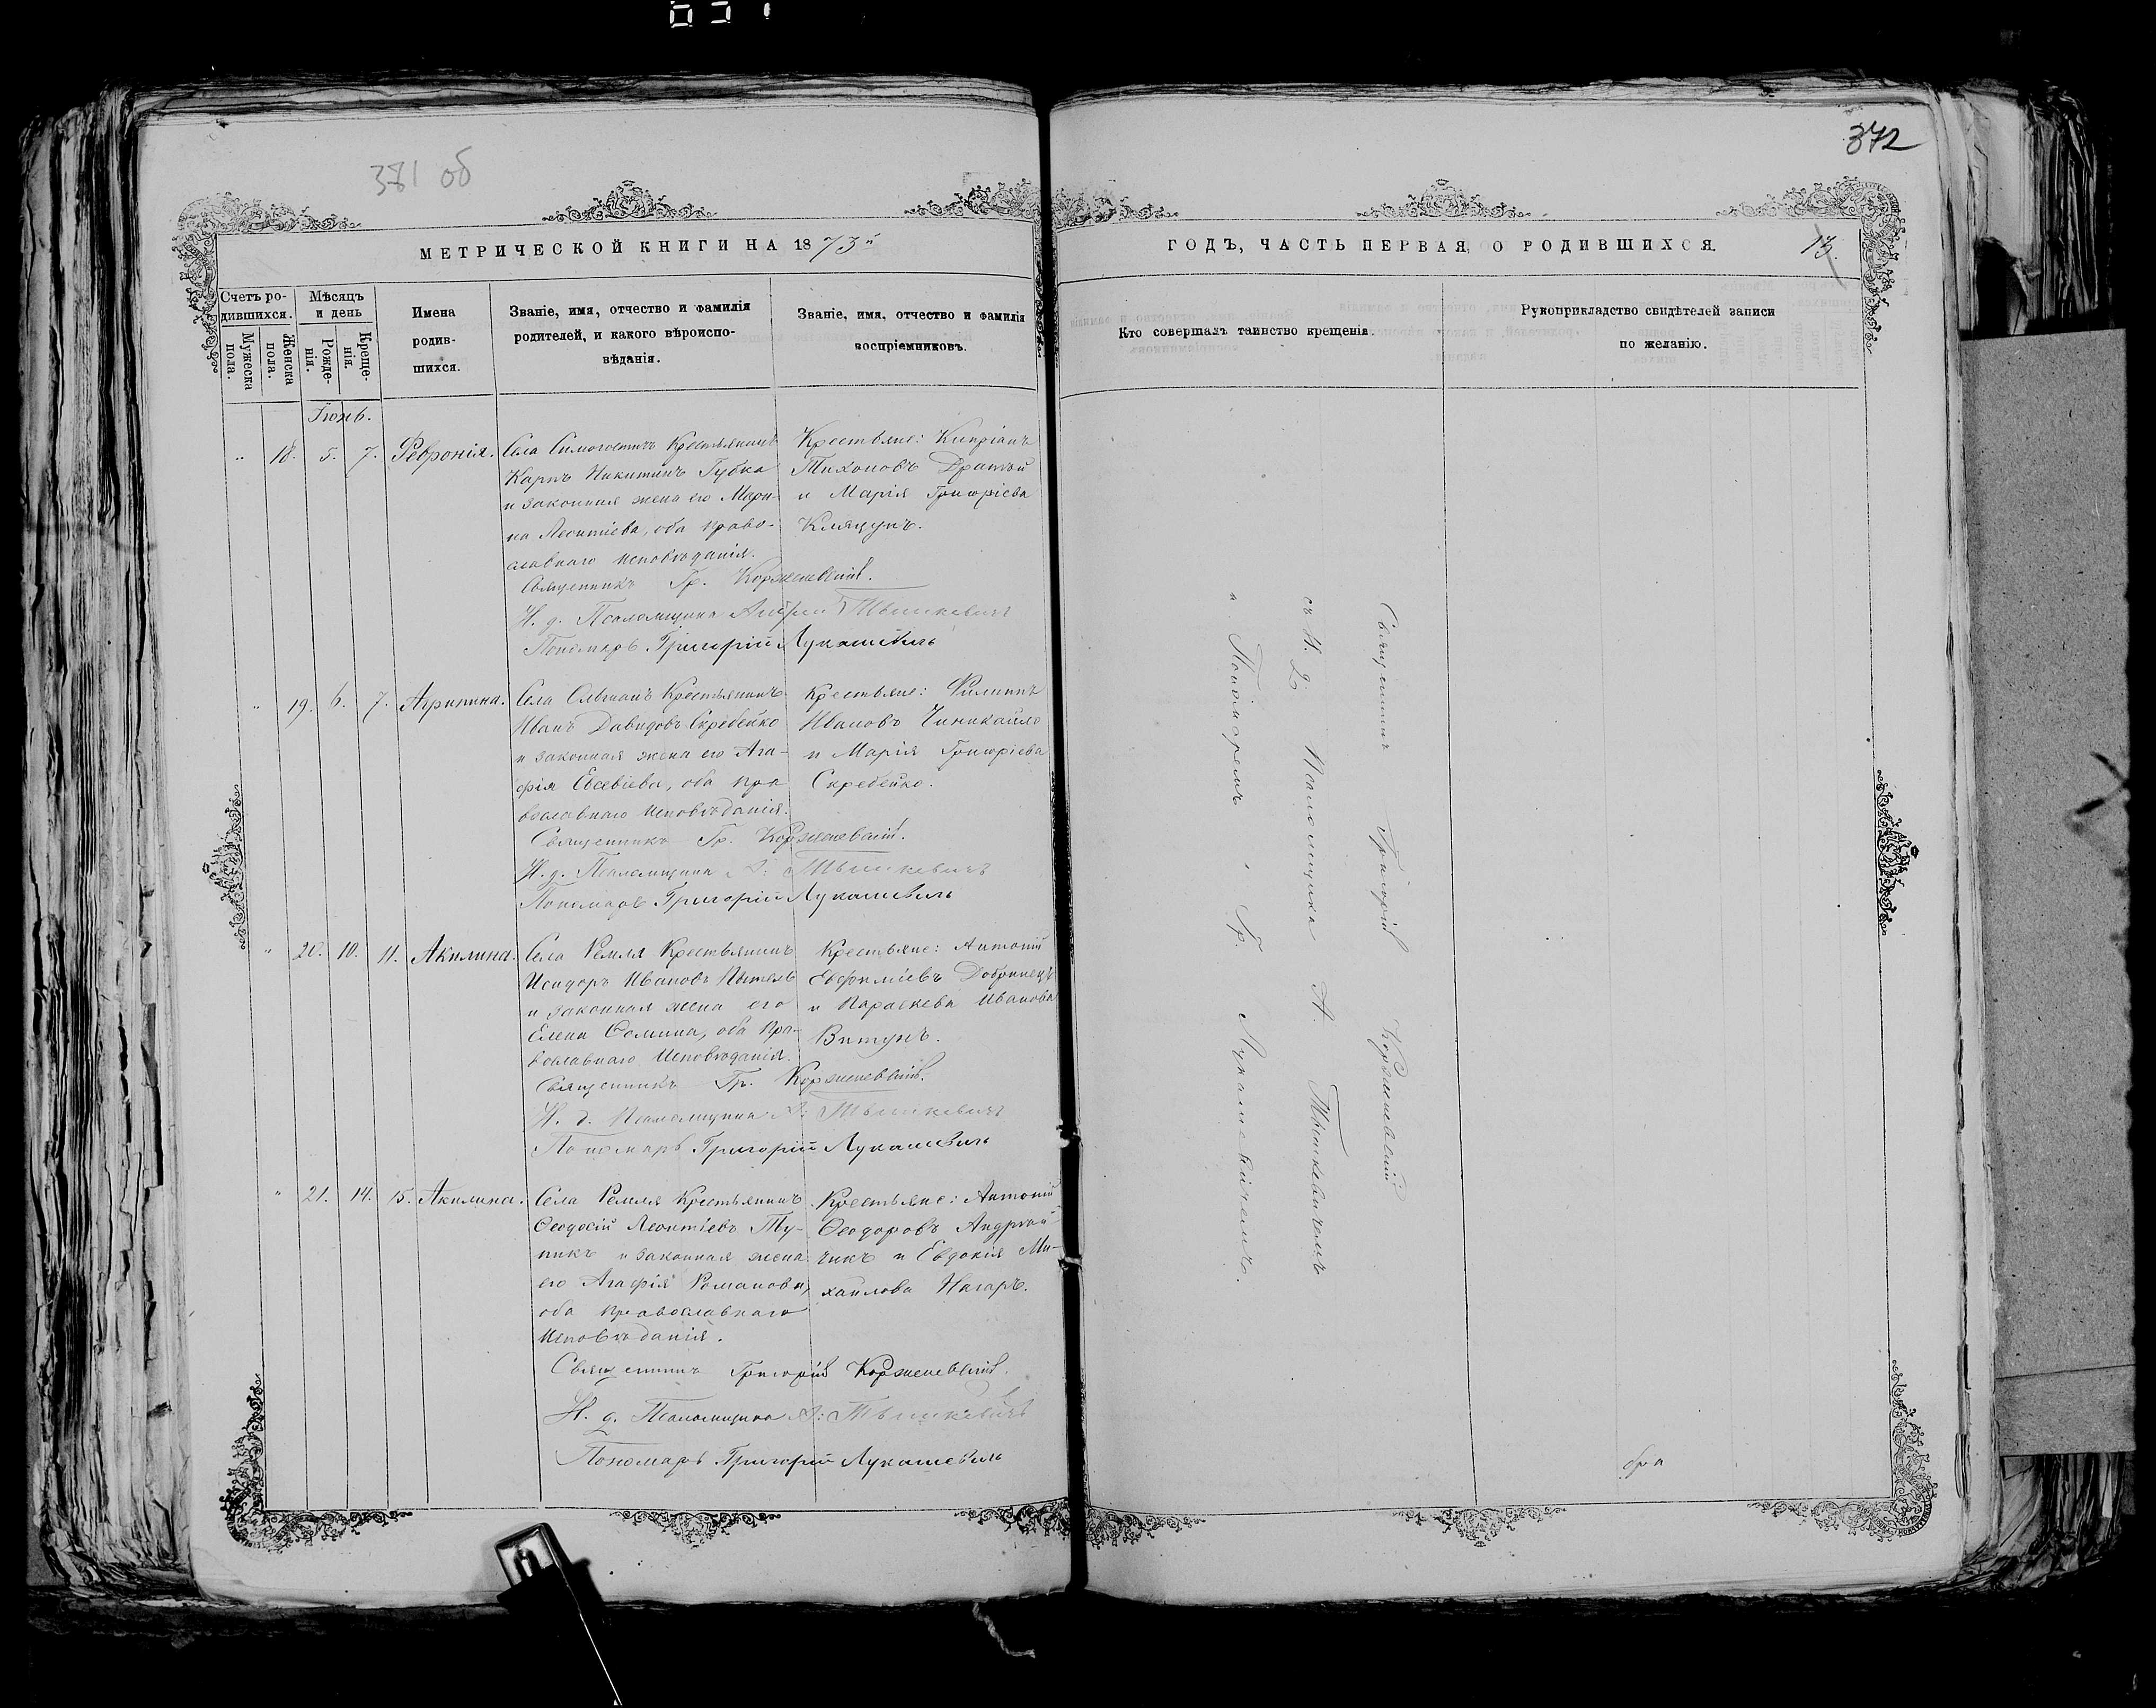 372
381 об
МЕТРИЧЕСКОЙ КНИГИ НА 1873й
ГОДЪ, ЧАСТЬ ПЕРВАЯ, О РОДИВШИХСЯ.
13.
Счетъ ро-
дившихся.
Мужеска пола.
Женска пола.
Мѣсяцъ
и день
Рожде-
нія.
Креще-
нія.
Имена
родив-
шихся.
Званіе, имя, отчество и фамилія
родителей, и какого вѣроиспо-
вѣданія.
Званіе, имя, отчество и фамилія
воспріемниковъ.
Кто совершалъ таинство крещенія.
Рукоприкладство свидѣтелей записи
по желанію.
Іюнь.
" 18. 5. 7. Февронія.
Села Крестьянинъ
Карпъ Никитинъ Губка
и законная жена его Мари-
на Леонтіева, оба право-
славнаго исповѣданія.
Крестьяне: Кипріанъ
Тихоновъ
и Марія Григоріева
Клящукъ.
Священникъ Гр. Корженевскій.
И. д. Псаломщика Андрей Тышкевичъ
Пономарь Григорій Лукашевичъ
" 19. 6. 7. Агрипина.
Села Крестьянинъ
Иванъ Давидовъ Скребейко
и законная жена его Ага-
фія Евсевіева, оба пра
вославнаго исповѣданія.
Крестьяне: Филиппъ
Ивановъ Чиникайло
и Марія Григоріева
Скребейко.
Священникъ Гр. Корженевскій.
И. д. Псаломщика А: Тышкевичъ
Пономарь Григорій Лукашевичъ
" 20. 10. 11. Акилина.
Села Ремля Крестьянинъ
Исидоръ Ивановъ
и законная жена его
Елена Ѳомина, оба пра-
вославнаго исповѣданія.
Крестьяне: Антоній
Евфиміевъ Добринецъ
и Параскева Иванова
Витунъ.
Священникъ Гр. Корженевскій.
И. д. Псаломщика А: Тышкевичъ
Пономарь Григорій Лукашевичъ
" 21. 14. 15. Акилина.
Села Ремля Крестьянинъ
Ѳеодосій Леонтіевъ Ту-
пикъ и законная жена
его Агафія Романова,
оба православнаго
исповѣданія.
Крестьяне: Антоній
Ѳеодоровъ Андрей
чикъ и Евдокія Ми-
хайлова Нагаръ.
Священникъ Григорій Корженевскій.
И. д. Псаломщика А: Тышкевичъ
Пономарь Григорій Лукашевичъ
Священникъ Григорій Корженевскій
съ И. д. Псаломщика А. Тышкевичемъ
и Пономаремъ Гр. Лукашевичемъ.